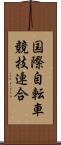 国際自転車
競技連合